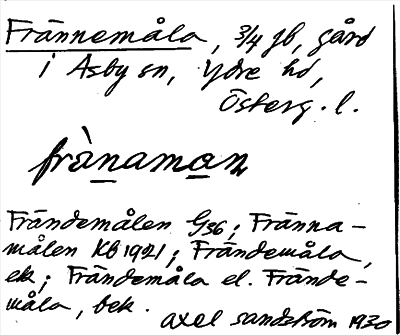 Frännemåla, 3/4 gb, gård
i Asby sn, Ydre hd,
Österg. l.
frànaman
Frändemålen G36; Fränna-
målen KB 1921; Frändemåla,
ek; Frändemåla el. Frände-
måla, bek.
Axel Sandström 1930